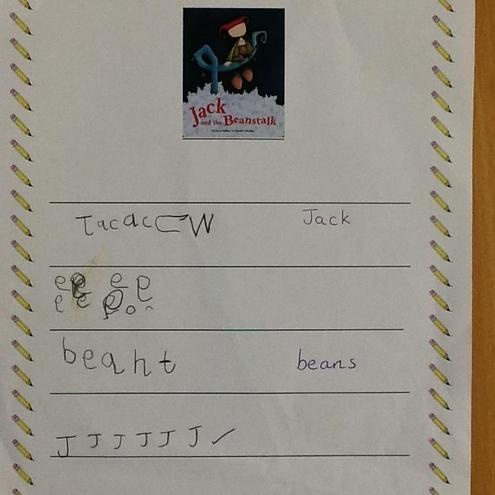 Jack
and the Beanstalk
TacacCW Jack
beaht beans
J J J J J J